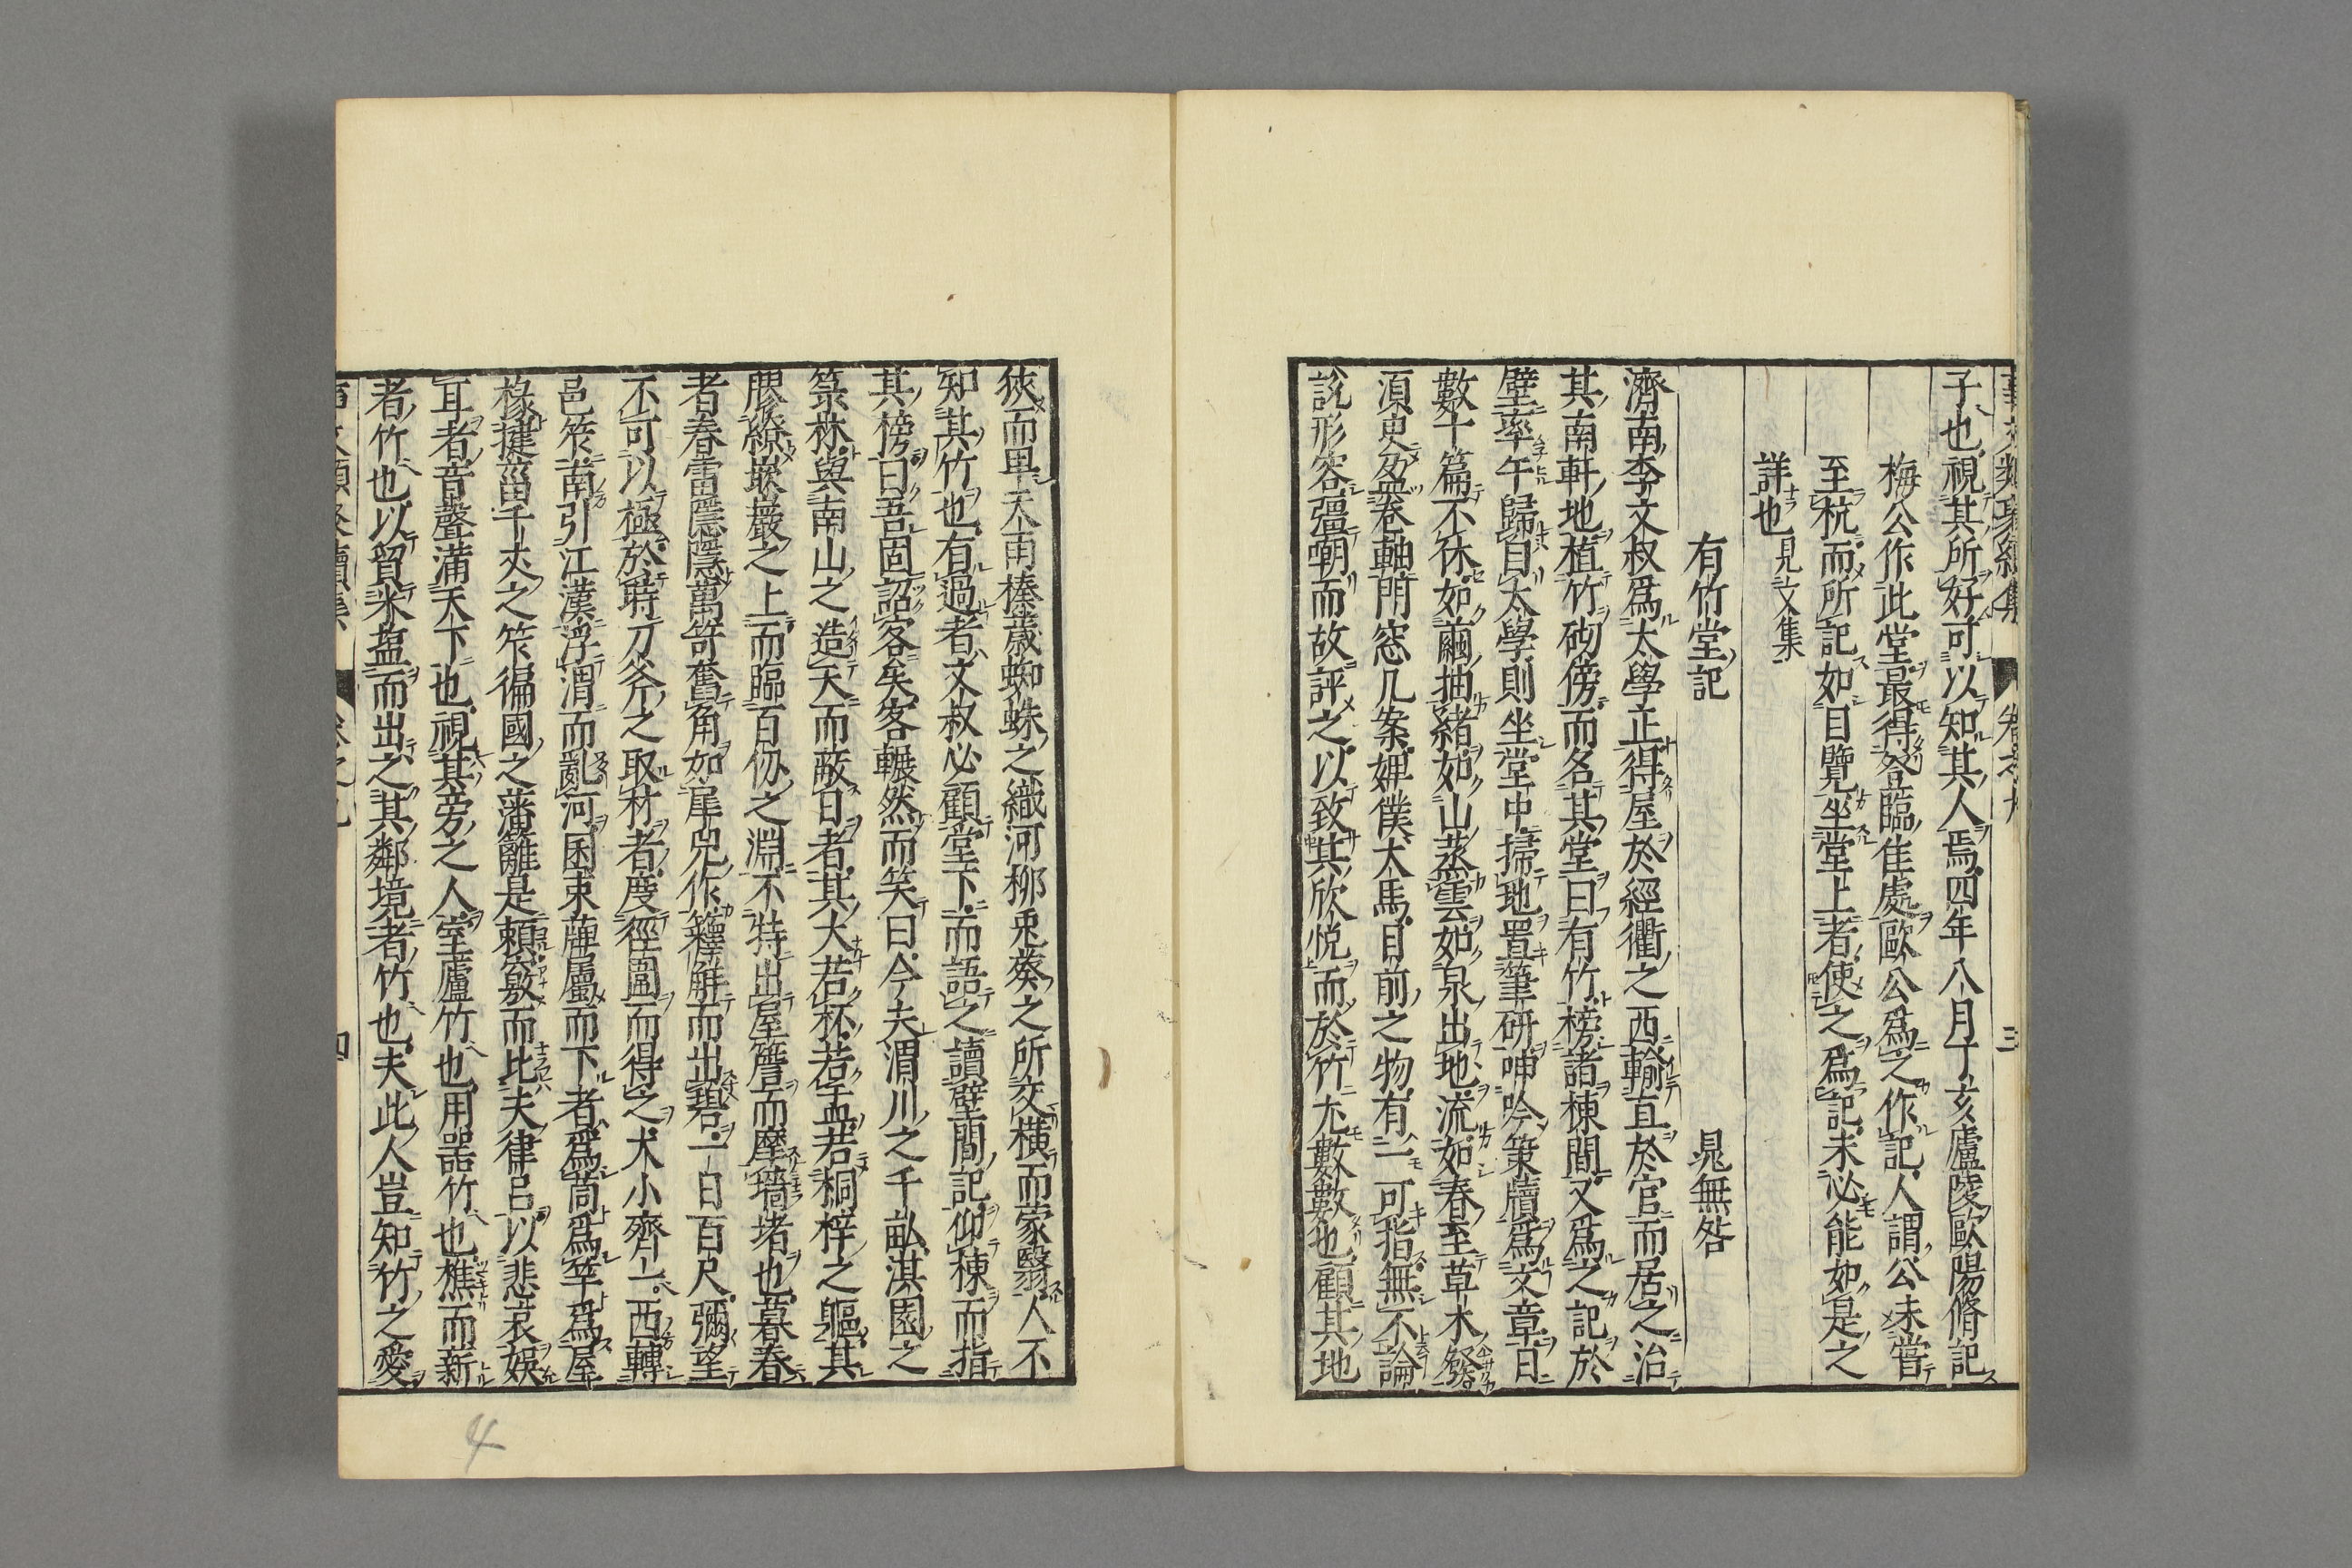 事文類聚續集 卷之九 三
子也視其所好可以知其人焉四年八月丁亥廬陵歐陽脩記
梅公作此堂最得登臨佳處歐公爲之作記人謂公未嘗
至杭而所記如目覽坐堂上者使之爲記未必能如是之
詳也見文集
有竹堂記 晁無咎
濟南李文叔爲太學正得屋於經衢之西輸直於官而居之治
其南軒地植竹砌傍而名其堂曰有竹榜諸棟間又爲之記於
壁率午歸自太學則坐堂中掃地置筆研呻吟策牘爲文章日
數十篇不休如繭抽緒如山蒸雲如泉出地流如春至草木發
須臾盈卷軸門窓几案婢僕犬馬目前之物有一可指無不論
說形容彊嘲而故評之以致其欣悅而於竹尤數數也顧其地
狹而卑天雨榛薉蜘蛛之織河柳兎葵之所交橫而蒙翳人不
知其竹也有過者文叔必顧堂下而語之讀壁間記仰棟而指
其榜曰吾固詔客矣客輾然而笑曰今夫渭川之千畝淇園之
篆林與南山之造天而蔽日者其大若杯若盂若桐梓之軀其
膠繚嵌巖之上而臨百仭之淵不特出屋簷而摩墻堵也暮春
者春雷隱隱萬笴奮角如犀兕作籜解而出碧一日百尺彌望
不可以極於時刀斧之取材者度徑圍而得之木小齊上西轉
邑筰南引江漢浮渭而亂河困束蘼屬而下者爲茼爲竿爲屋
椽揵菑千夾之筰徧國之藩籬是賴竅而比夫律呂以悲哀娛
耳者音聲滿天下也視其旁之人室廬竹也用器竹也樵而新
者竹也以貿米鹽而出之其鄰境者竹也夫此人豈知竹之愛
事文類聚續集 卷之九 四
4